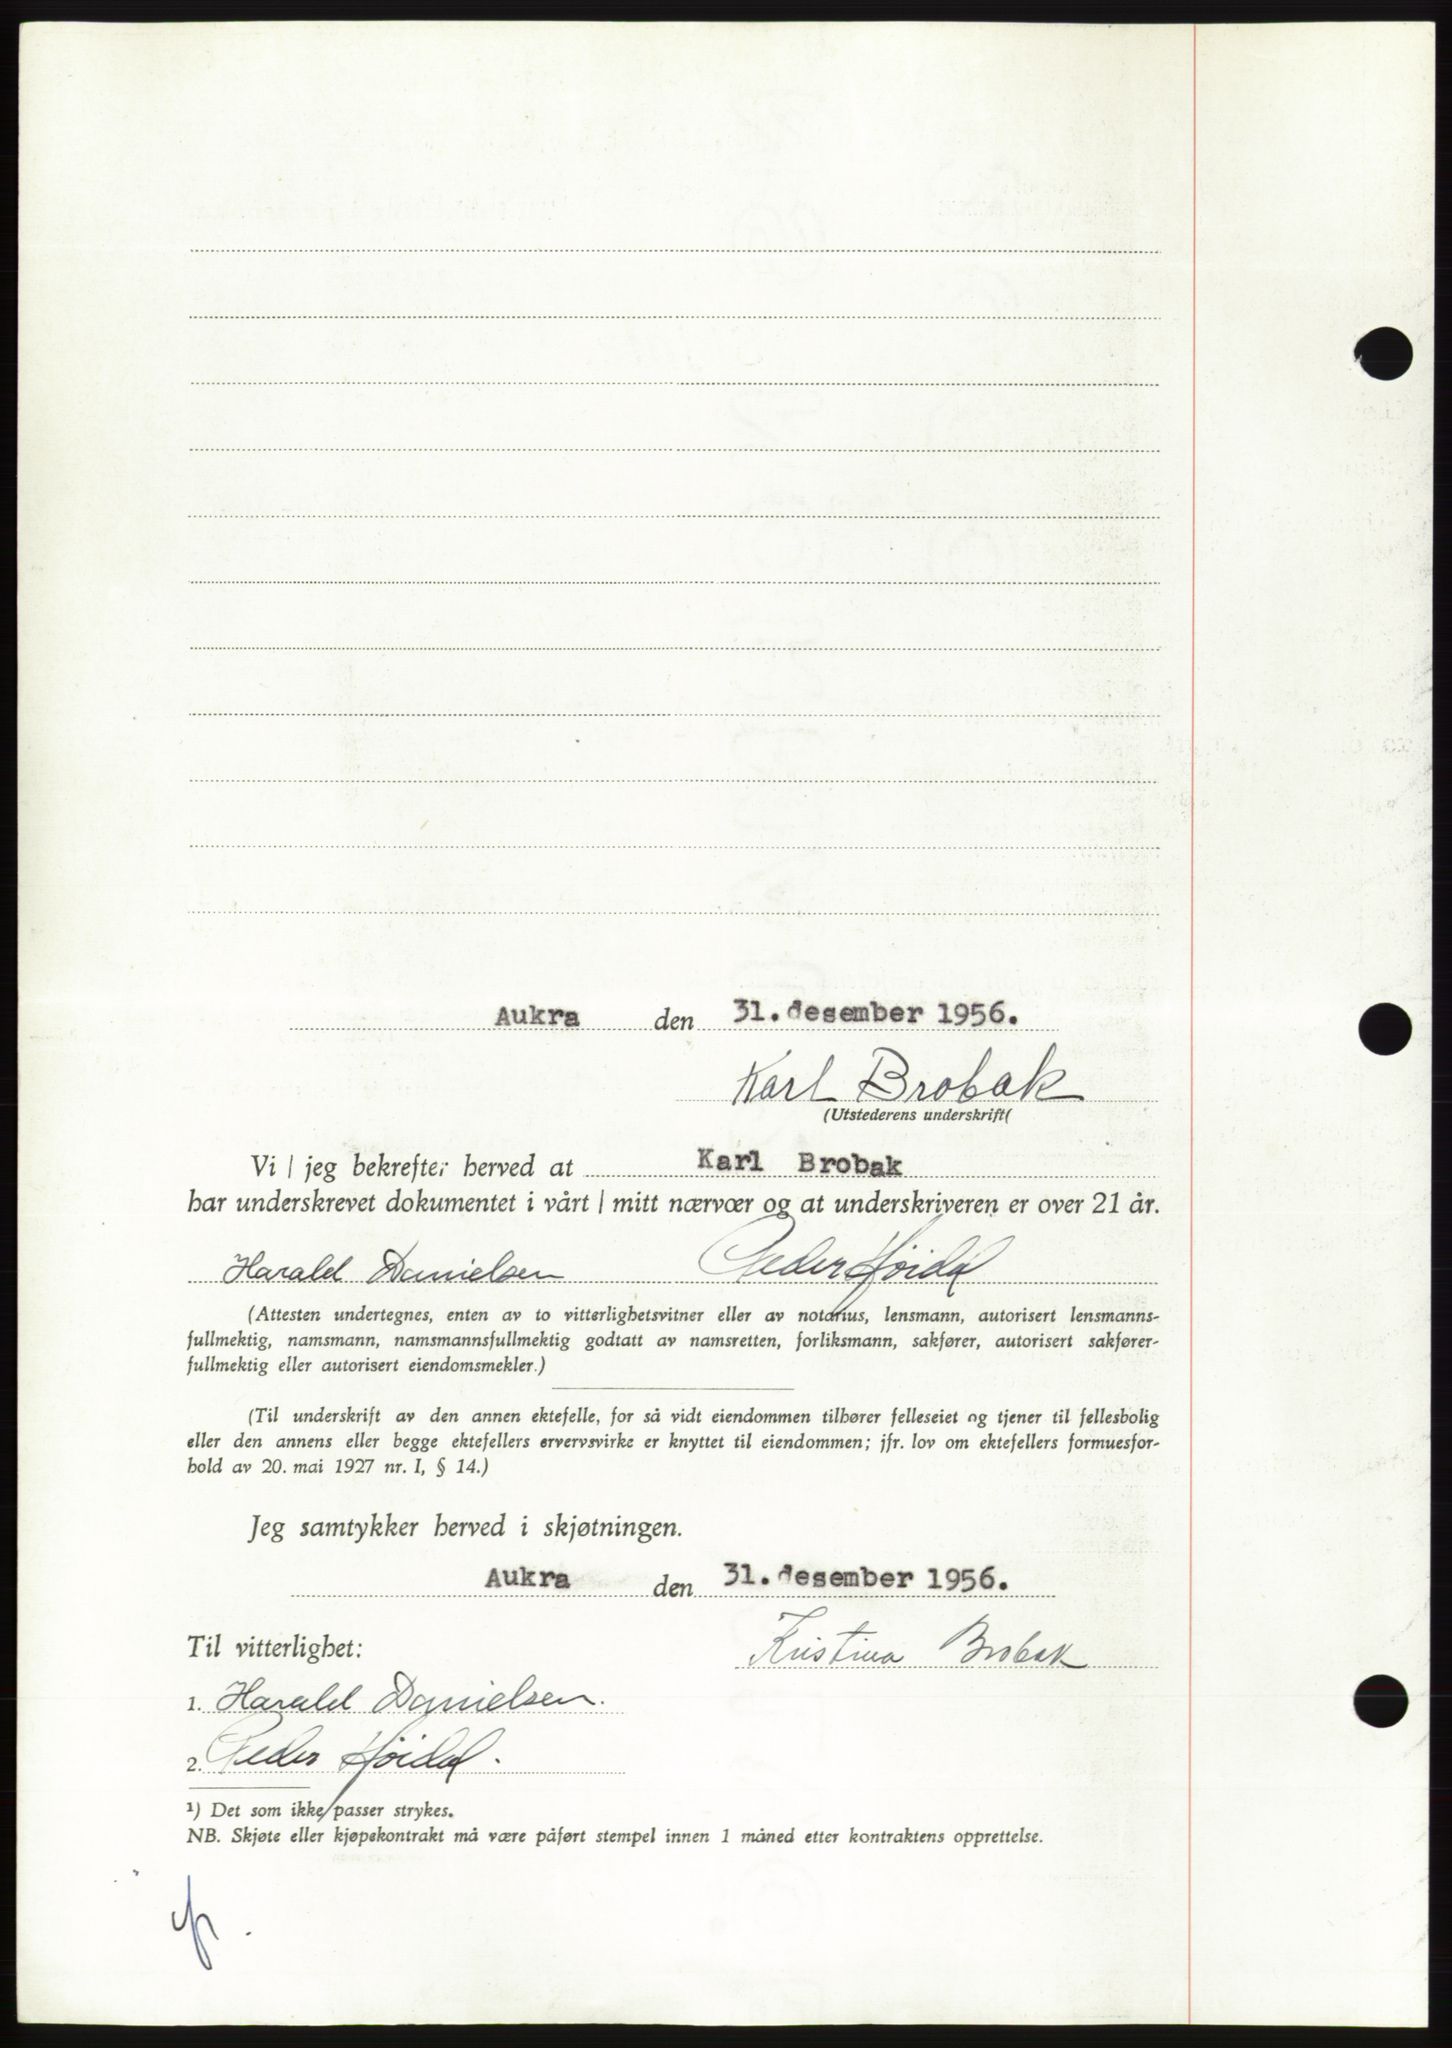 Aukra den 31. desember 1956.
Karl Brobak
(Utstederens underskrift(
Vi / jeg bekrefter herved at Karl Brobak
har underskrevet dokumentet i vårt / mitt nærvær og at underskriveren er over 21 år.
Harald Danielsen Peder Høidal
(Attesten undertegnes, enten av to vitterlighetsvitner eller av notarius, lensmann, autorisert lensmanns-
fullmektig, namsmann, namsmannsfullmektig godtatt av namsretten, forliksmann, sakfører, autorisert sakfører-
fullmektig eller autorisert eiendomsmekler.)
(Til underskrift av den annen ektefelle, for så vidt eiendommen tilhører felleseiet og tjener til fellesbolig
eller den annens eller begge ektefellers ervervsvirke er knyttet til eiendommen; jfr. lov om ektefellers formuesfor-
hold av 20. mai 1927 nr. I, § 14.)
Jeg samtykker herved i skjøtningen.
Aukra den 31. desember 1956.
Til vitterlighet: Kristina Brobak
1. Harald Danielsen.
2. Peder Høidal.
¹) Det som ikke passer strykes.
NB. Skjøte eller kjøpekontrakt må være påført stempel innen 1 måned etter kontraktens opprettelse.